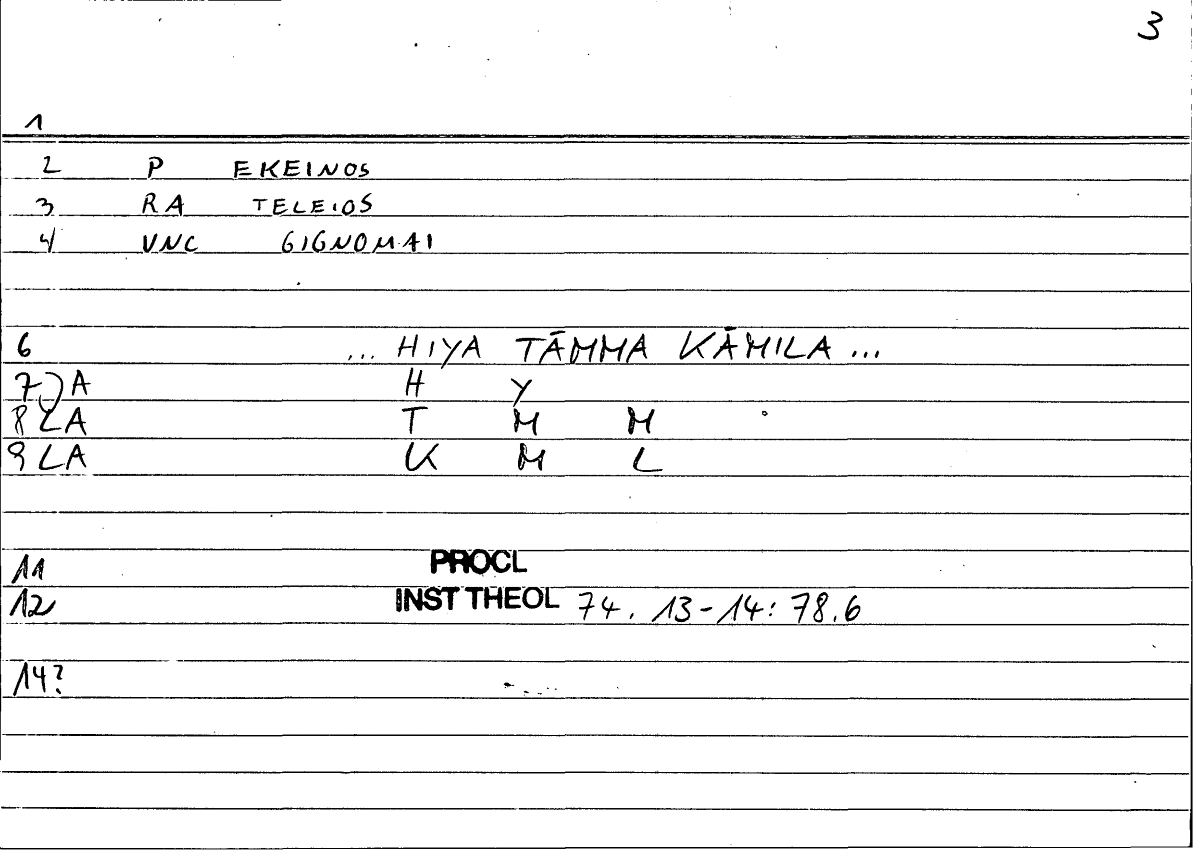 3
1
2 P EKEINOS
3 RA TELEIOS
4 VNC GIGNOMAI
6 ... HIYA TĀMMA KĀMILA ...
7 A H Y
8 LA T M M
9 LA K M L
11 PROCL
12 INST THEOL 74. 13-14: 78.6
14?